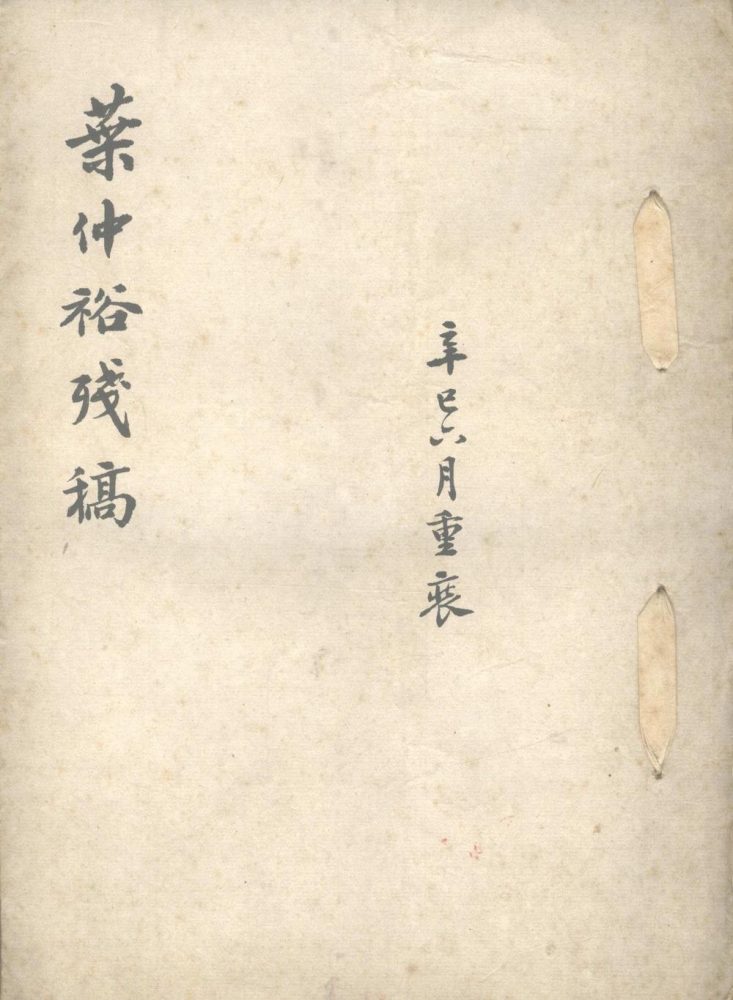 辛巳六月重裝
葉仲裕残稿